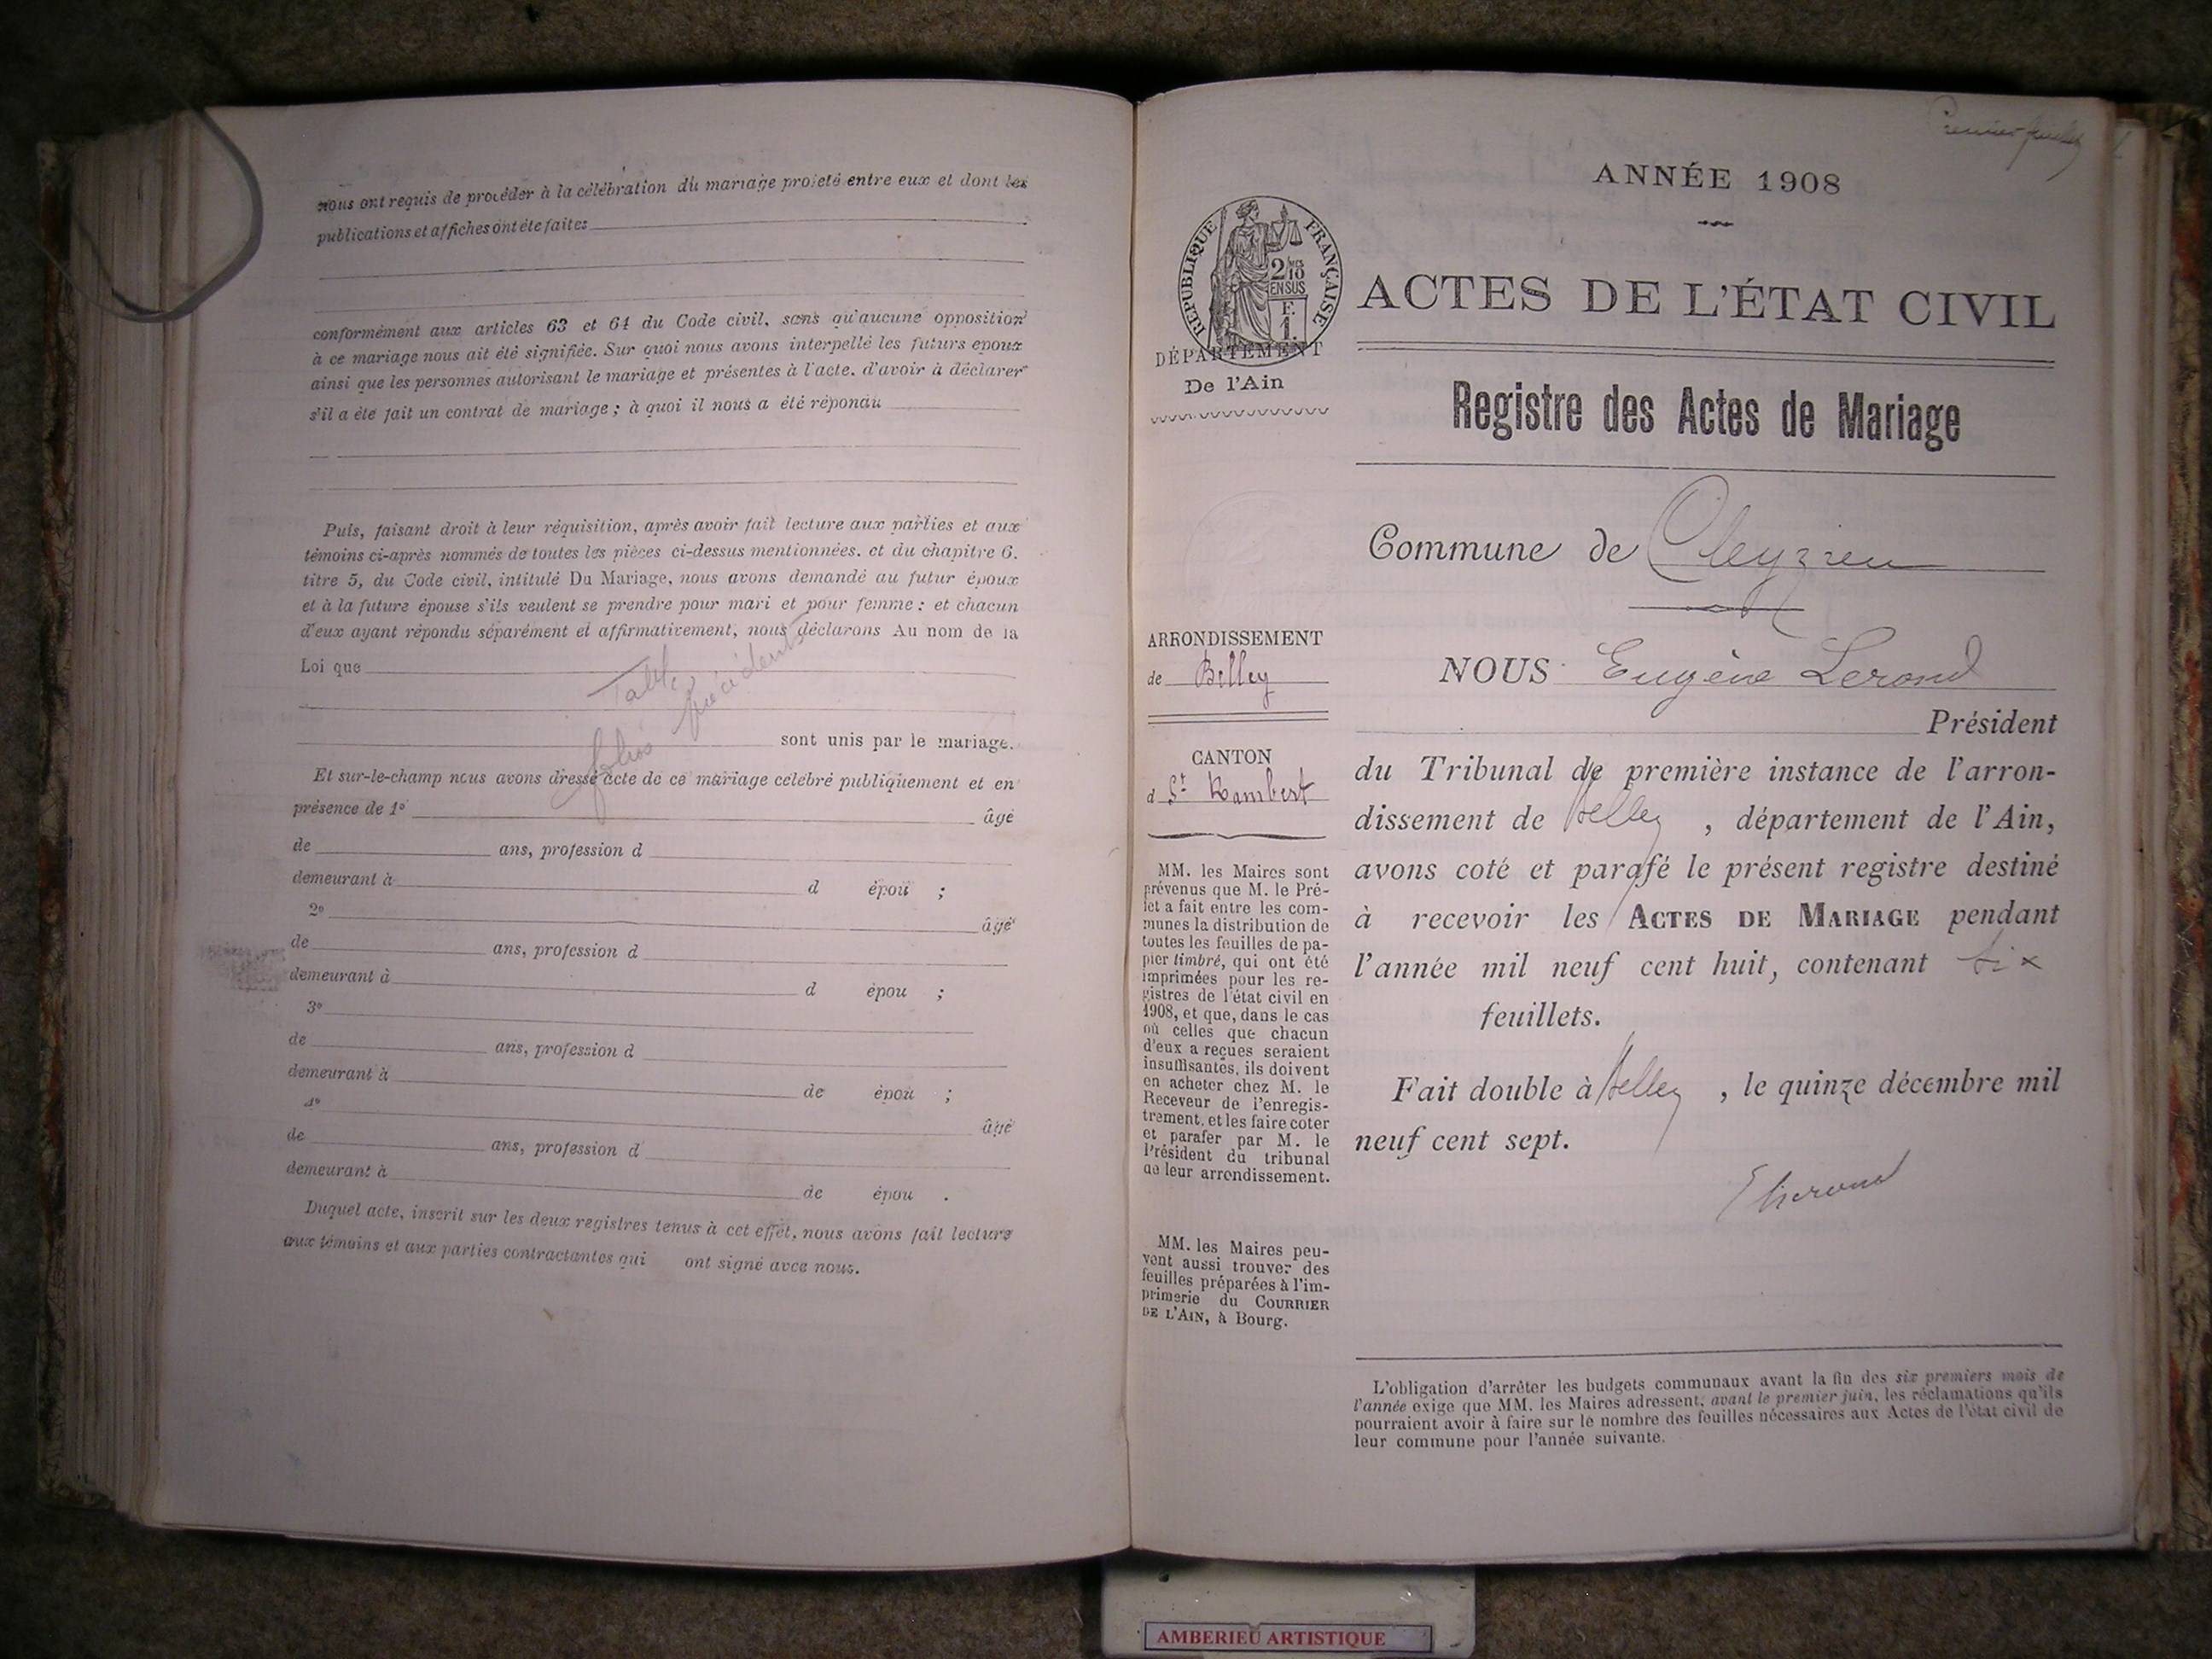 nous ont requis de procéder à la célébration du mariage projeté entre eux et dont les
publications et affiches ont été faites
conformément aux articles 63 et 64 du Code civil, sans qu'aucune opposition
à ce mariage nous ait été signifiée. Sur quoi nous avons interpellé les futurs epoux
ainsi que les personnes autorisant le mariage et présentes à l'acte. d'avoir à déclarer
s'il a été fait un contrat de mariage ; à quoi il nous a été répondu
Puis, faisant droit à leur réquisition, après avoir fait lecture aux parties et aux
témoins ci-après nommés de toutes les pièces ci-dessus mentionnées. et du chapitre 6.
titre 5, du Code civil, intitulé Du Mariage, nous avons demandé au futur époux
et à la future épouse s'ils veulent se prendre pour mari et pour femme : et chacun
d'eux ayant répondu séparément et affirmativement, nous déclarons Au nom de la
Loi que
Table
folios précédents
sont unis par le mariage.
Et sur-le-champ nous avons dressé acte de ce mariage célébré publiquement et en
présence de 1º âgé
de ans, profession d
demeurant à d épou ;
2º âgé
de ans, profession d
demeurant à d épou ;
3º
de ans, profession d
demeurant à de épou ;
4º âgé
de ans, profession d
demeurant à de épou .
Duquel acte, inscrit sur les deux registres tenus à cet effet, nous avons fait lecture
aux témoins et aux parties contractantes qui ont signé avec nous.
Premier feuillet
ANNÉE 1908
RÉPUBLIQUE FRANÇAISE
2/10MES
EN SUS
F.
1.
ACTES DE L'ÉTAT CIVIL
DÉPARTEMENT
De l'Ain
Registre des Actes de Mariage
Commune de Cleyzieu
ARRONDISSEMENT
de Belley
CANTON
d St Rambert
MM. les Maires sont
prévenus que M. le Pré-
fet a fait entre les com-
munes la distribution de
toutes les feuilles de pa-
pier timbré, qui ont été
imprimées pour les re-
gistres de l'état civil en
1908, et que, dans le cas
où celles que chacun
d'eux a reçues seraient
insuffisantes, ils doivent
en acheter chez M. le
Receveur de l'enregis-
trement, et les faire coter
et parafer par M. le
Président du tribunal
de leur arrondissement.
MM. les Maires peu-
vent aussi trouver des
feuilles préparées à l'im-
primerie du COURRIER
DE L'AIN, à Bourg.
NOUS Eugène Lerond
Président
du Tribunal de première instance de l'arron-
dissement de Belley , département de l'Ain,
avons coté et parafé le présent registre destiné
à recevoir les ACTES DE MARIAGE pendant
l'année mil neuf cent huit, contenant six
feuillets.
Fait double à Belley , le quinze décembre mil
neuf cent sept.
E Lerond
L'obligation d'arrêter les budgets communaux avant la fin des six premiers mois de
l'année exige que MM. les Maires adressent, avant le premier juin, les réclamations qu'ils
pourraient avoir à faire sur le nombre des feuilles nécessaires aux Actes de l'état civil de
leur commune pour l'année suivante.
AMBERIEU ARTISTIQUE